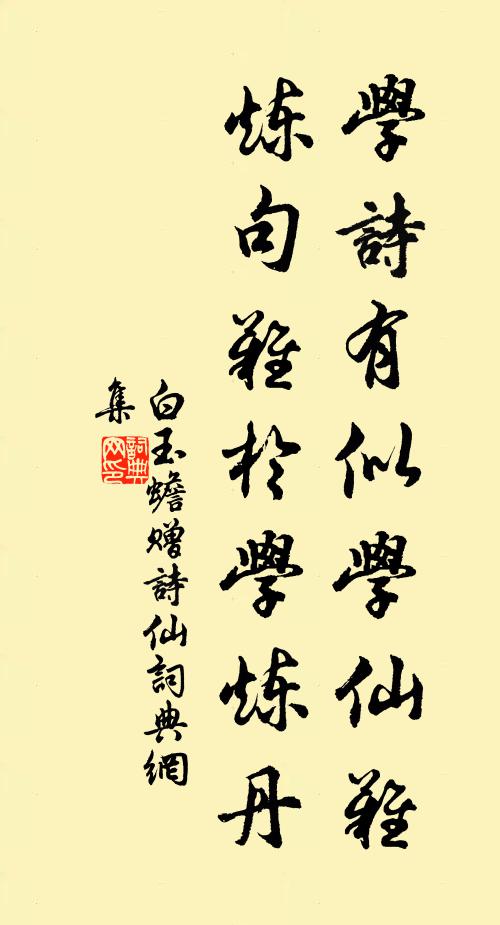 學詩有似學仙難
炼句難於學炼丹
白玉蟾贈詩仙詞典網
集
詞典网印